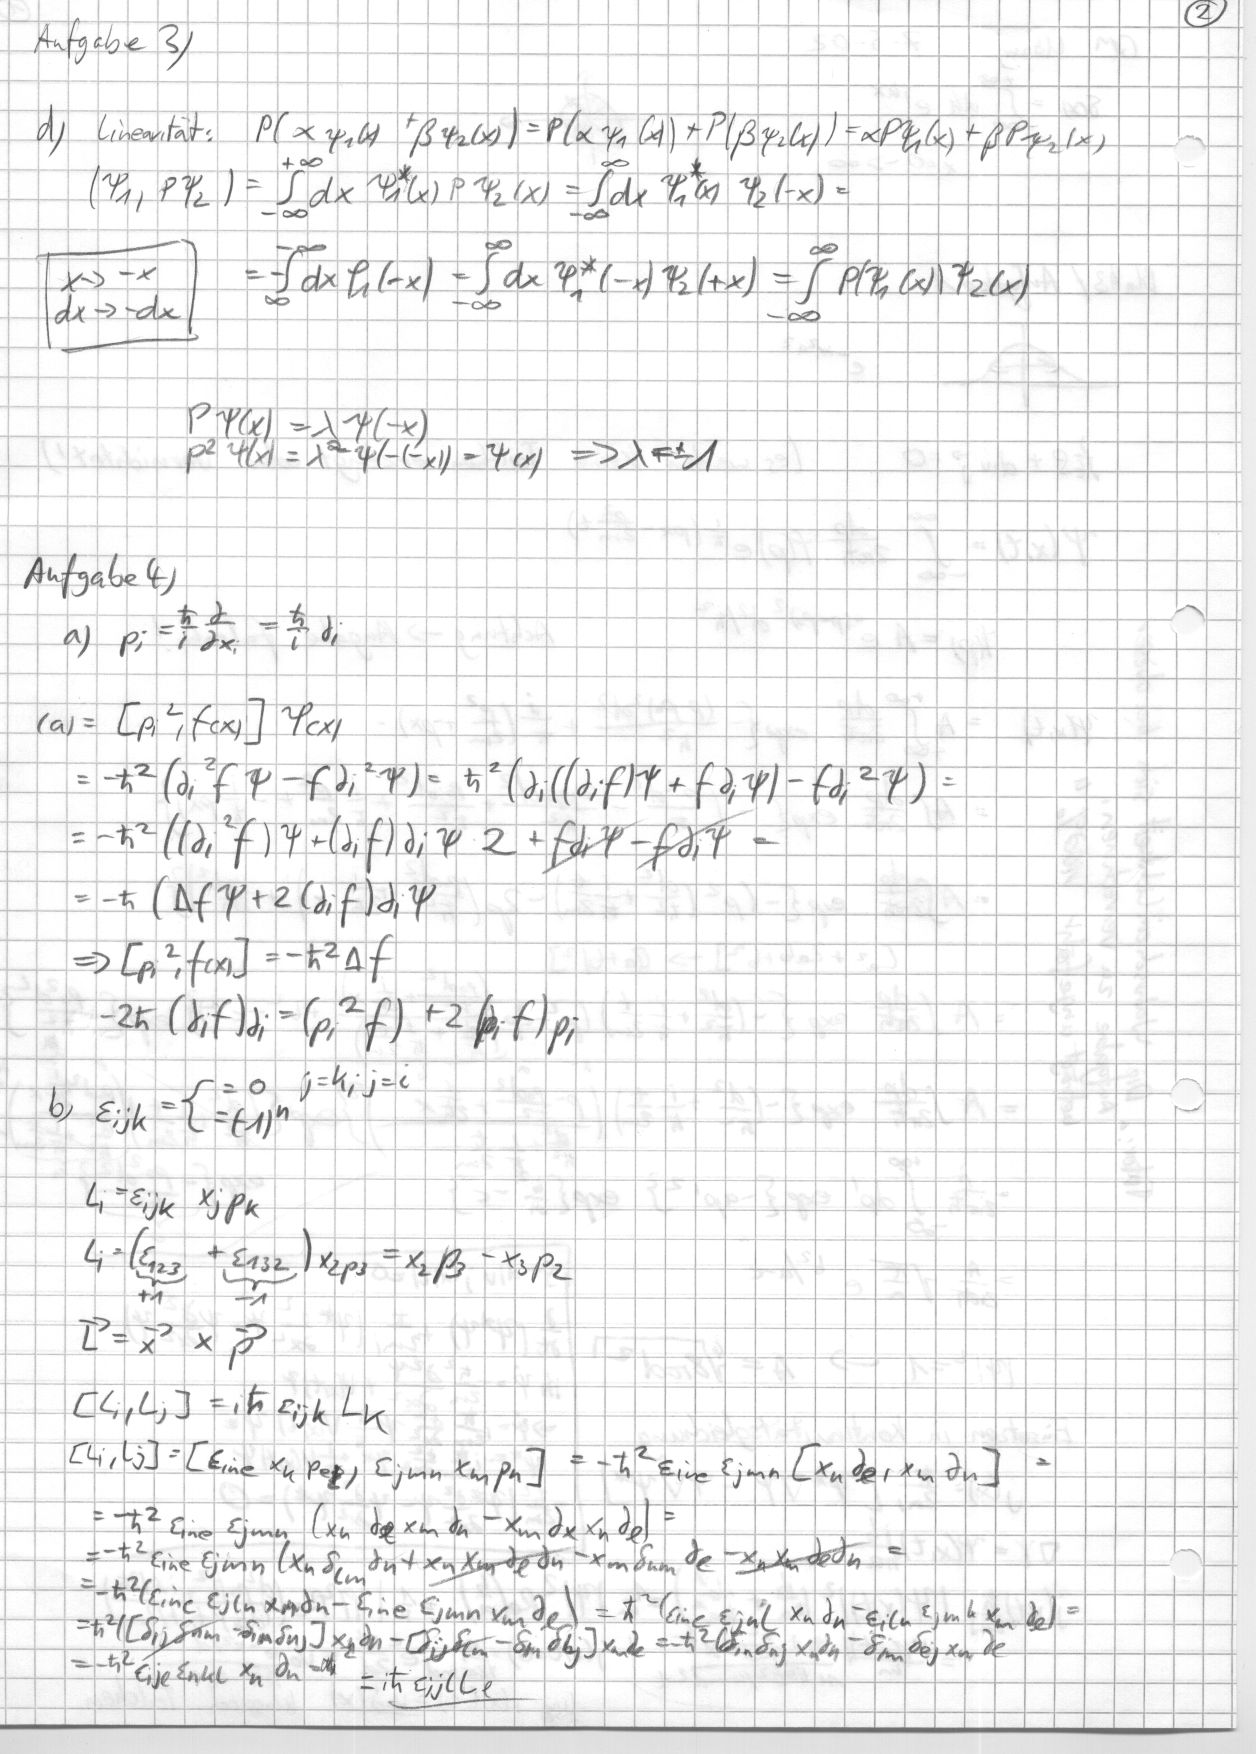 ②
Aufgabe 3)
d) Linearität: P(αψ₁(x) + βψ₂(x)) = P(αψ₁(x)) + P(βψ₂(x)) = αPψ₁(x) + βPψ₂(x)
(ψ₁, Pψ₂) = ∫_{-∞}^{+∞} dx ψ₁*(x) P ψ₂(x) = ∫_{-∞}^{∞} dx ψ₁*(x) ψ₂(-x) =
x → -x
dx → -dx
= -∫_{∞}^{-∞} dx ψ₁(-x) = ∫_{-∞}^{∞} dx ψ₁*(-x) ψ₂(+x) = ∫_{-∞}^{∞} P(ψ₁(x)) ψ₂(x)
P ψ(x) = λ ψ(-x)
P² ψ(x) = λ² ψ(-(-x)) = ψ(x) => λ = ±1
Aufgabe 4)
a) pᵢ = ħ/i ∂/∂xᵢ = ħ/i ∂ᵢ
(a) = [pᵢ², f(x)] ψ(x)
= -ħ² (∂ᵢ² f ψ - f ∂ᵢ² ψ) = ħ² (∂ᵢ((∂ᵢf)ψ + f ∂ᵢψ) - f∂ᵢ²ψ) =
= -ħ² ((∂ᵢ²f)ψ + (∂ᵢf) ∂ᵢψ 2 + f∂ᵢψ - f∂ᵢψ =
= -ħ (Δf ψ + 2(∂ᵢf)∂ᵢψ
=> [pᵢ², f(x)] = -ħ² Δf
-2ħ (∂ᵢf)∂ᵢ = (pᵢ²f) + 2(pᵢf)pᵢ
b) εᵢⱼₖ = { = 0 j=k, j=i
= (-1)ⁿ
Lᵢ = εᵢⱼₖ xⱼpₖ
Lᵢ = (ε₁₂₃ + ε₁₃₂) x₂p₃ = x₂p₃ - x₃p₂
+1 -1
L⃗ = x⃗ × p⃗
[Lᵢ, Lⱼ] = iħ εᵢⱼₖ Lₖ
[Lᵢ, Lⱼ] = [εᵢₙₑ xₖ pₑ, εⱼₘₙ xₘ pₙ] = -ħ² εᵢₙₑ εⱼₘₙ [xₙ ∂ₑ, xₘ ∂ₙ] =
= -ħ² εᵢₙₑ εⱼₘₙ (xₙ ∂ₑ xₘ ∂ₙ - xₘ ∂ₓ xₙ ∂ₑ) =
= -ħ² εᵢₙₑ εⱼₘₙ (xₙ δₗₘ ∂ₙ + xₙ xₘ ∂ₑ ∂ₙ - xₘ δₙₘ ∂ₑ - xₙ xₘ ∂ₑ∂ₙ =
= -ħ² (εᵢₙₑ εⱼₗₙ xₙ∂ₙ - εᵢₙₑ εⱼₘₙ xₘ ∂ₑ) = ħ² (εᵢₙₑ εⱼₙₗ xₙ∂ₙ - εᵢₗₙ εⱼₘₖ xₘ ∂ₑ) =